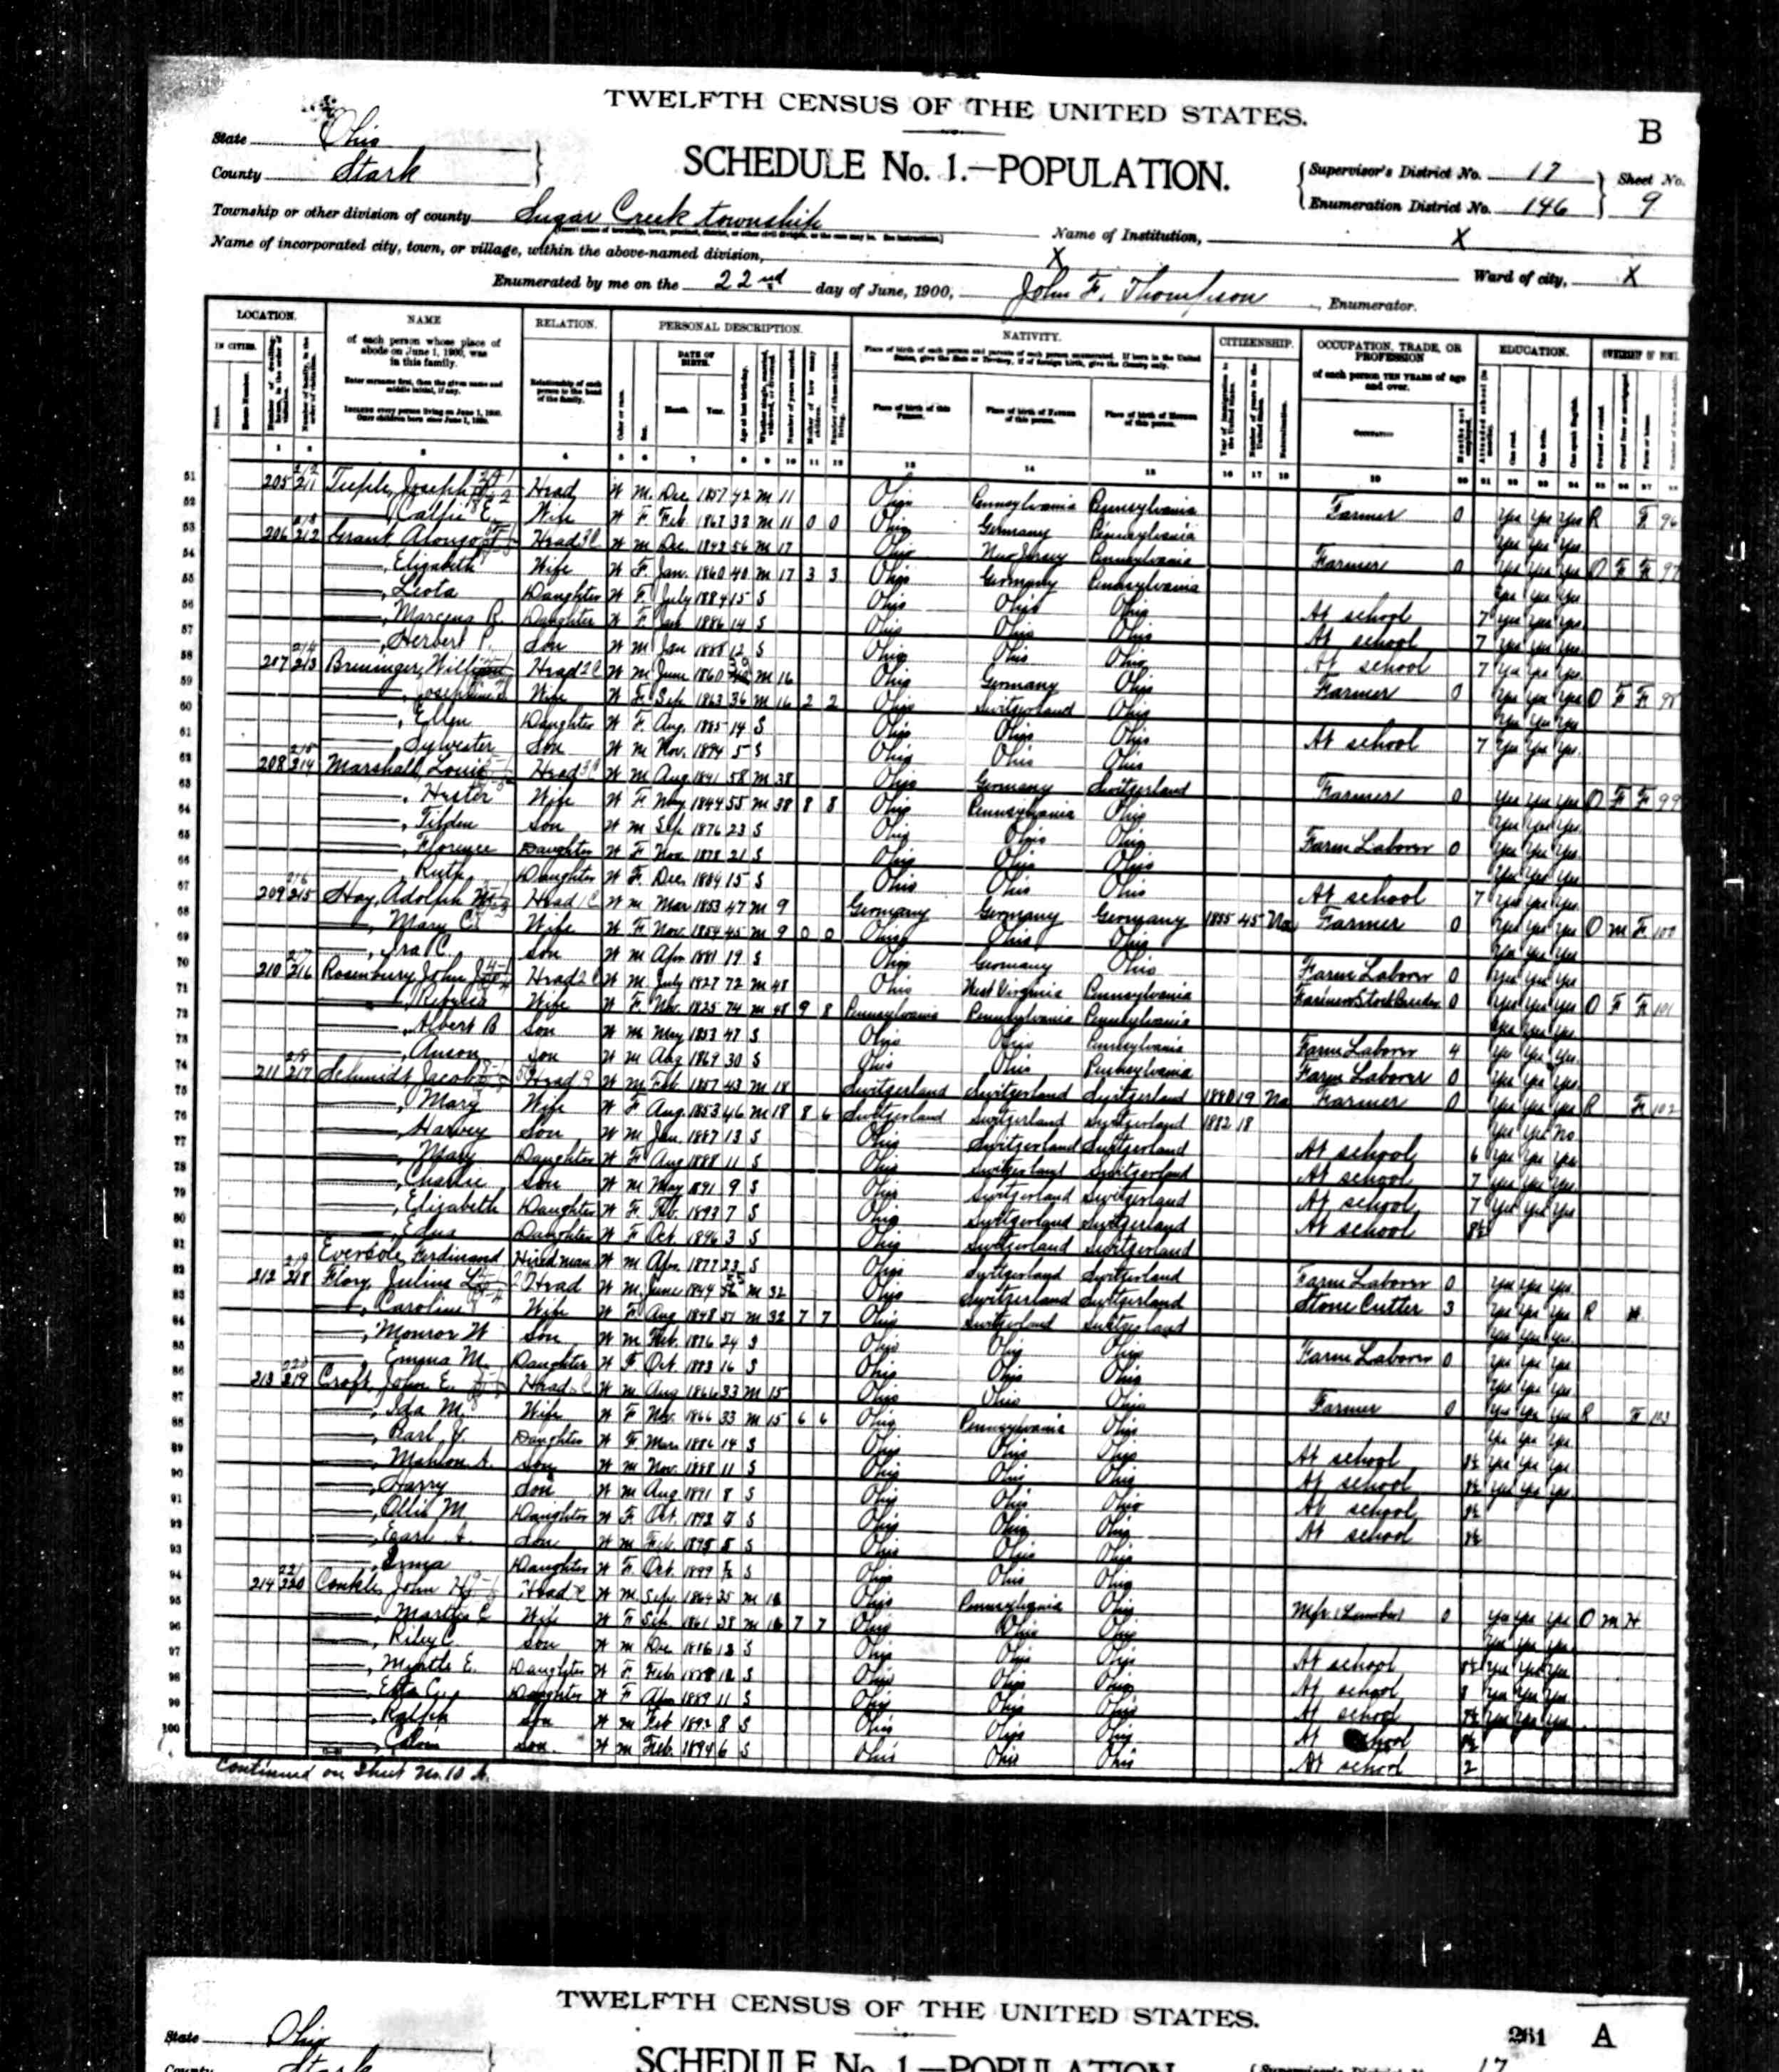 TWELFTH CENSUS OF THE UNITED STATES.
B
State Ohio
County Stark
SCHEDULE No. 1.—POPULATION.
Supervisor's District No. 17
Enumeration District No. 146
Sheet No. 9
Township or other division of county Sugar Creek township
Name of Institution, X
Name of incorporated city, town, or village, within the above-named division, X
Ward of city, X
Enumerated by me on the 22nd day of June, 1900, John F. Thompson, Enumerator.
LOCATION. NAME RELATION. PERSONAL DESCRIPTION. NATIVITY. CITIZENSHIP. OCCUPATION, TRADE, OR PROFESSION EDUCATION. OWNERSHIP OF HOME.
IN CITIES. of each person whose place of abode on June 1, 1900, was in this family. Relationship of each person to the head of the family. DATE OF BIRTH. of each person TEN YEARS of age and over.
Enter surname first, then the given name and middle initial, if any.
INCLUDE every person living on June 1, 1900. OMIT children born since June 1, 1900.
Place of birth of each person and parents of each person enumerated. If born in the United States, give the State or Territory; if of foreign birth, give the Country only.
Month. Year. Place of birth of this PERSON. Place of birth of FATHER of this person. Place of birth of MOTHER of this person.
51 205 211 Joseph Head W M Dec 1857 42 M 11 Ohio Pennsylvania Pennsylvania Farmer 0 yes yes yes R F 96
52 Wife W F Feb 33 M 11 0 0 Ohio Germany Pennsylvania yes yes yes
53 206 212 Grant Head W M Dec 56 M 17 Ohio New Jersey Pennsylvania Farmer 0 yes yes yes O F F 97
54 Elizabeth Wife W F Jan 1860 40 M 17 3 3 Ohio Germany Pennsylvania yes yes yes
55 Leota Daughter W F July 1884 15 S Ohio Ohio Ohio At school 7 yes yes yes
56 R. Daughter W F Jan 1886 14 S Ohio Ohio Ohio At school 7 yes yes yes
57 Herbert P. Son W M Jan 1888 12 S Ohio Ohio Ohio At school 7 yes yes yes
58 207 213 William Head W M June 1860 M 16 Ohio Germany Ohio Farmer 0 yes yes yes O F F 98
59 Josephine Wife W F Sep 1863 36 M 16 2 2 Ohio Switzerland Ohio yes yes yes
60 Ellen Daughter W F Aug 1885 14 S Ohio Ohio Ohio At school 7 yes yes yes
61 Sylvester Son W M Nov 1894 5 S Ohio Ohio Ohio
62 208 214 Marshall, Louis Head W M Aug 1841 58 M 38 Ohio Germany Switzerland Farmer 0 yes yes yes O F F 99
63 Hester Wife W F May 1844 55 M 38 8 8 Ohio Pennsylvania Ohio yes yes yes
64 Tilden Son W M Sep 1876 23 S Ohio Ohio Ohio Farm Laborer 0 yes yes yes
65 Florence Daughter W F Nov 1878 21 S Ohio Ohio Ohio yes yes yes
66 Ruth Daughter W F Dec 1884 15 S Ohio Ohio Ohio At school 7 yes yes yes
67 209 215 Hay, Adolph Head W M Mar 1853 47 M 9 Germany Germany Germany 1855 45 Na Farmer 0 yes yes yes O M F 100
68 Mary C. Wife W F Nov 1854 45 M 9 0 0 Ohio Ohio Ohio yes yes yes
69 Ira C. Son W M Apr 1881 19 S Ohio Germany Ohio Farm Laborer 0 yes yes yes
70 210 216 Rosenbury, John Head W M July 1827 72 M 48 Ohio West Virginia Pennsylvania 0 yes yes yes O F F 101
71 Wife W F Nov 1825 74 M 48 9 8 Pennsylvania Pennsylvania Pennsylvania yes yes yes
72 Albert B Son W M May 1853 47 S Ohio Ohio Pennsylvania Farm Laborer 4 yes yes yes
73 Anson Son W M Aug 1869 30 S Ohio Ohio Pennsylvania Farm Laborer 0 yes yes yes
74 211 217 Schmidt, Jacob Head W M Feb 1857 43 M 18 Switzerland Switzerland Switzerland 1880 19 Na Farmer 0 yes yes yes R F 102
75 Mary Wife W F Aug 1853 46 M 18 8 6 Switzerland Switzerland Switzerland 1882 18 yes yes no
76 Harvey Son W M Jan 1887 13 S Ohio Switzerland Switzerland At school 6 yes yes yes
77 Mary Daughter W F Aug 1888 11 S Ohio Switzerland Switzerland At school 7 yes yes yes
78 Charlie Son W M May 1891 9 S Ohio Switzerland Switzerland At school 7 yes yes yes
79 Elizabeth Daughter W F Feb 1893 7 S Ohio Switzerland Switzerland At school
80 Edna Daughter W F Oct 1896 3 S Ohio Switzerland Switzerland
81 Eversole, Ferdinand Hired man W M Apr 1877 23 S Ohio Switzerland Switzerland Farm Laborer 0 yes yes yes
82 212 218 Flory, Julius Head W M June 1844 M 32 Ohio Switzerland Switzerland Stone Cutter 3 yes yes yes R H
83 Caroline Wife W F Aug 1848 51 M 32 7 7 Ohio Switzerland Switzerland yes yes yes
84 Monroe W Son W M Feb 1876 24 S Ohio Ohio Ohio Farm Laborer 0 yes yes yes
85 Emma M. Daughter W F Oct 1883 16 S Ohio Ohio Ohio yes yes yes
86 213 219 Croft, John E. Head W M Aug 1866 33 M 15 Ohio Ohio Ohio Farmer 0 yes yes yes R F 103
87 Ida M. Wife W F Nov 1866 33 M 15 6 6 Ohio Pennsylvania Ohio yes yes yes
88 Daughter W F Mar 1886 14 S Ohio Ohio Ohio At school 8½ yes yes yes
89 Mahlon A. Son W M Nov 1888 11 S Ohio Ohio Ohio At school 8½ yes yes yes
90 Harry Son W M Aug 1891 8 S Ohio Ohio Ohio At school 8½
91 Ollie M Daughter W F Oct 1892 7 S Ohio Ohio Ohio At school 8½
92 Earl A. Son W M Feb 1895 5 S Ohio Ohio Ohio
93 Daughter W F Oct 1899 S Ohio Ohio Ohio
94 214 220 Conkle, John Head W M Sep 1864 35 M Ohio Pennsylvania Ohio Mfr (Lumber) 0 yes yes yes O M H
95 Martha E Wife W F Sep 1861 38 M 7 7 Ohio Ohio Ohio yes yes yes
96 Riley C Son W M Dec 1886 13 S Ohio Ohio Ohio At school 8½ yes yes yes
97 Myrtle E. Daughter W F Feb 1888 12 S Ohio Ohio Ohio At school 8 yes yes yes
98 Etta C. Daughter W F Apr 1889 11 S Ohio Ohio Ohio At school yes yes yes
99 Ralph Son W M Feb 1892 8 S Ohio Ohio Ohio At school 8½
100 Calvin Son W M Feb 1894 6 S Ohio Ohio Ohio At school 2
Continued on Sheet No. 10 A.
TWELFTH CENSUS OF THE UNITED STATES.
State Ohio
261 A
County Stark
SCHEDULE No. 1.—POPULATION
Supervisor's District No. 17